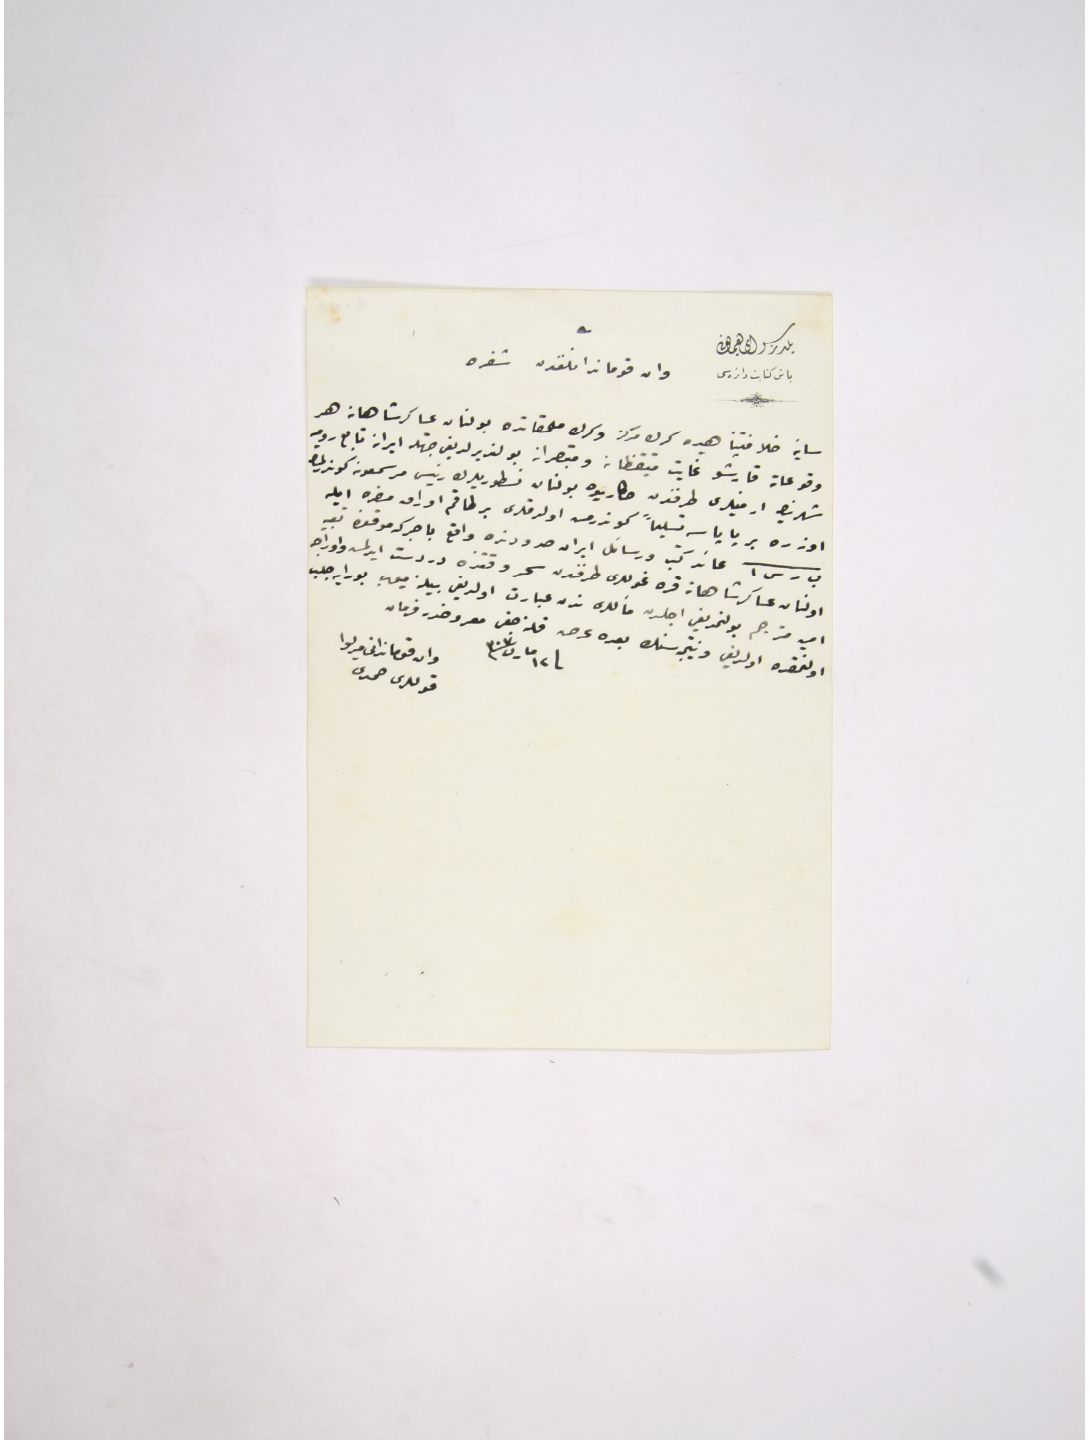 یلدیز سرای همایونی
باش کتابت دائره‌سی
وان قوماندانلغندن شفره
سایهٔ خلافتپناهیده کرك مرکز و کرك ملحقاتده بولنان عساکر شاهانه هر
وقوعاته قارشو غایت متیقظانه و متبصرانه بولندیرلدیغی جهتله ایرانه تابع رومیه
شهرنده ارمنیلری طرفندن حکاریده بولنان نسطوریلرك رئیسی مرشمعونه کوندرلمك
اوزره بر پاپاسه تسلیماً کوندرمش اولدقلری بر طاقم اوراق مضره ایله
عائد کتب و رسائل ایران حدودنده واقع باجرکه موقعنده تعبیه
اولنان عساکر شاهانه قره غوللری طرفندن سحر وقتنده دردست ایدلمش و اوراجه
امین مترجم بولنمدیغی اجلدن مآللری ندن عبارت اولدیغی بیلنه‌میوب بورایه جلب
اولنمقده اولدیغی و نتیجه‌سنك بعده عرض قلنه‌جغی معروضدر فرمان
فی ١٢ مارت ٣٠٧
وان قوماندانی میرلوا
قوللری حمدی